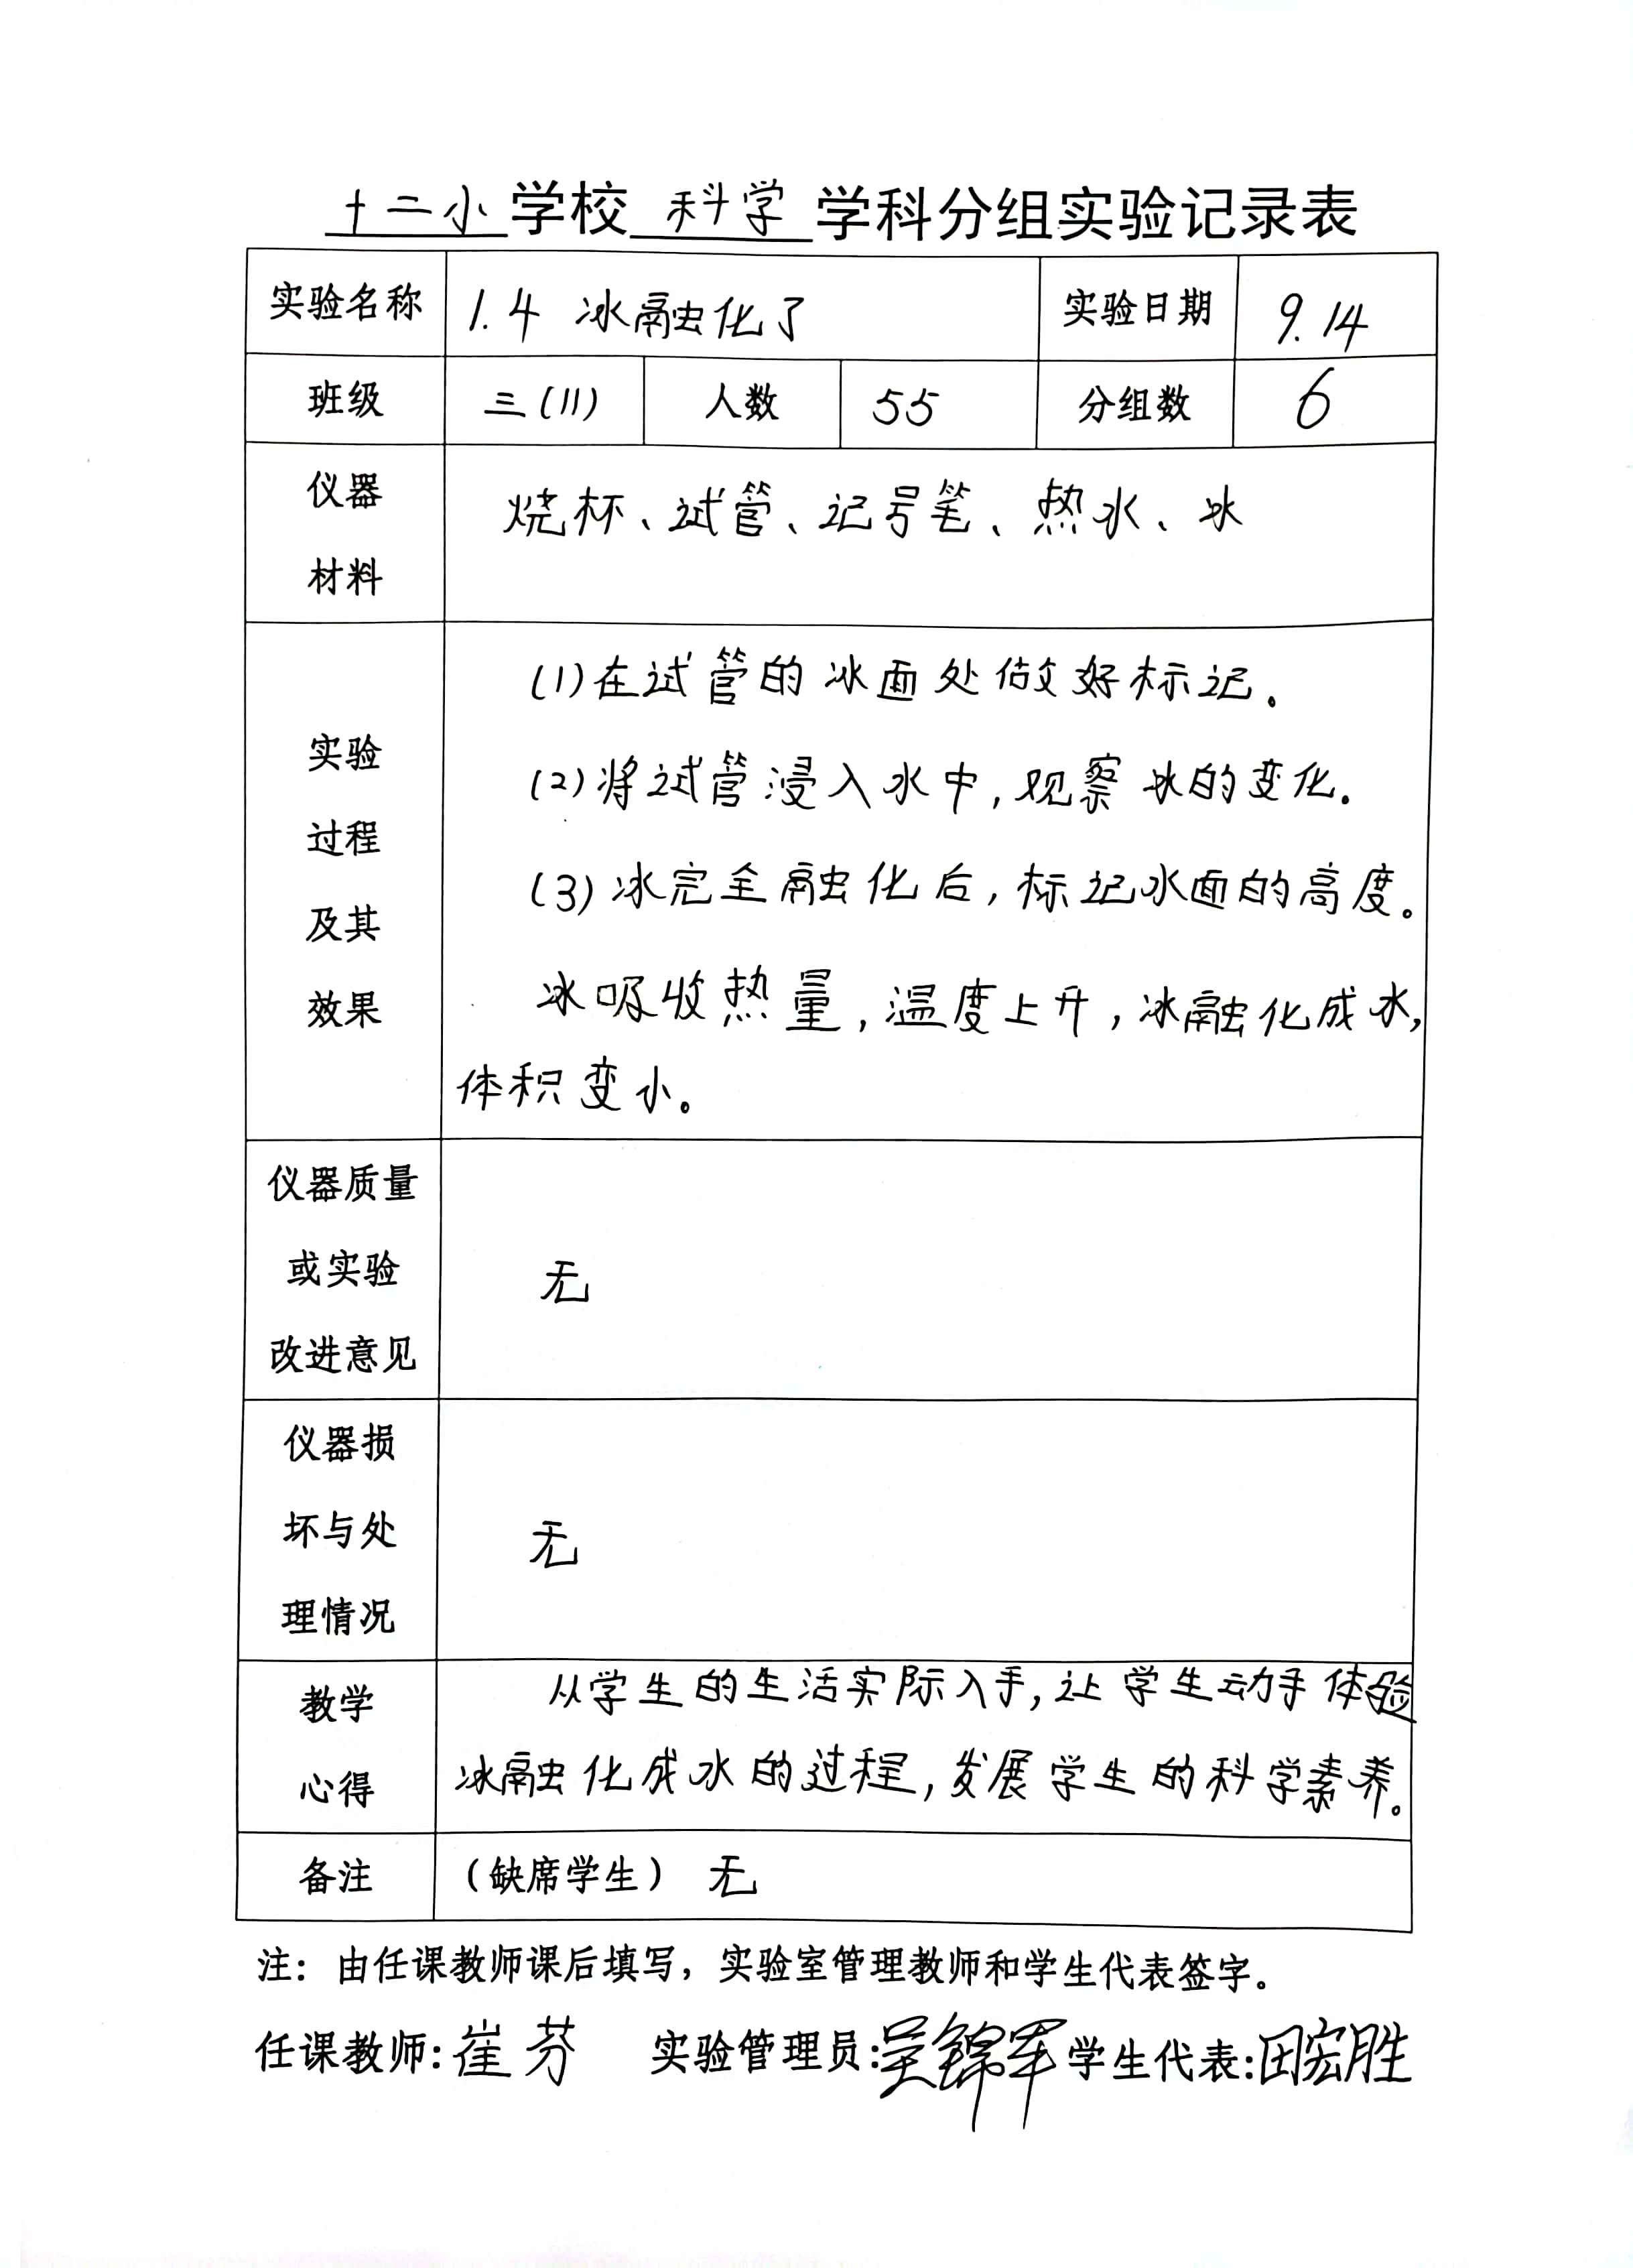 十二小学校科学学科分组实验记录表
实验名称 1.4 冰融化了 实验日期 9.14
班级 三(11) 人数 55 分组数 6
仪器
材料
烧杯、试管、记号笔、热水、冰
实验
过程
及其
效果
(1)在试管的冰面处做好标记。
(2)将试管浸入水中,观察冰的变化.
(3)冰完全融化后,标记水面的高度。
冰吸收热量,温度上升,冰融化成水,
体积变小。
仪器质量
或实验
改进意见
无
仪器损
坏与处
理情况
无
教学
心得
从学生的生活实际入手,让学生动手体验
冰融化成水的过程,发展学生的科学素养。
备注 (缺席学生) 无
注：由任课教师课后填写，实验室管理教师和学生代表签字。
任课教师:崔芬 实验管理员:吴锦军 学生代表:田宏胜